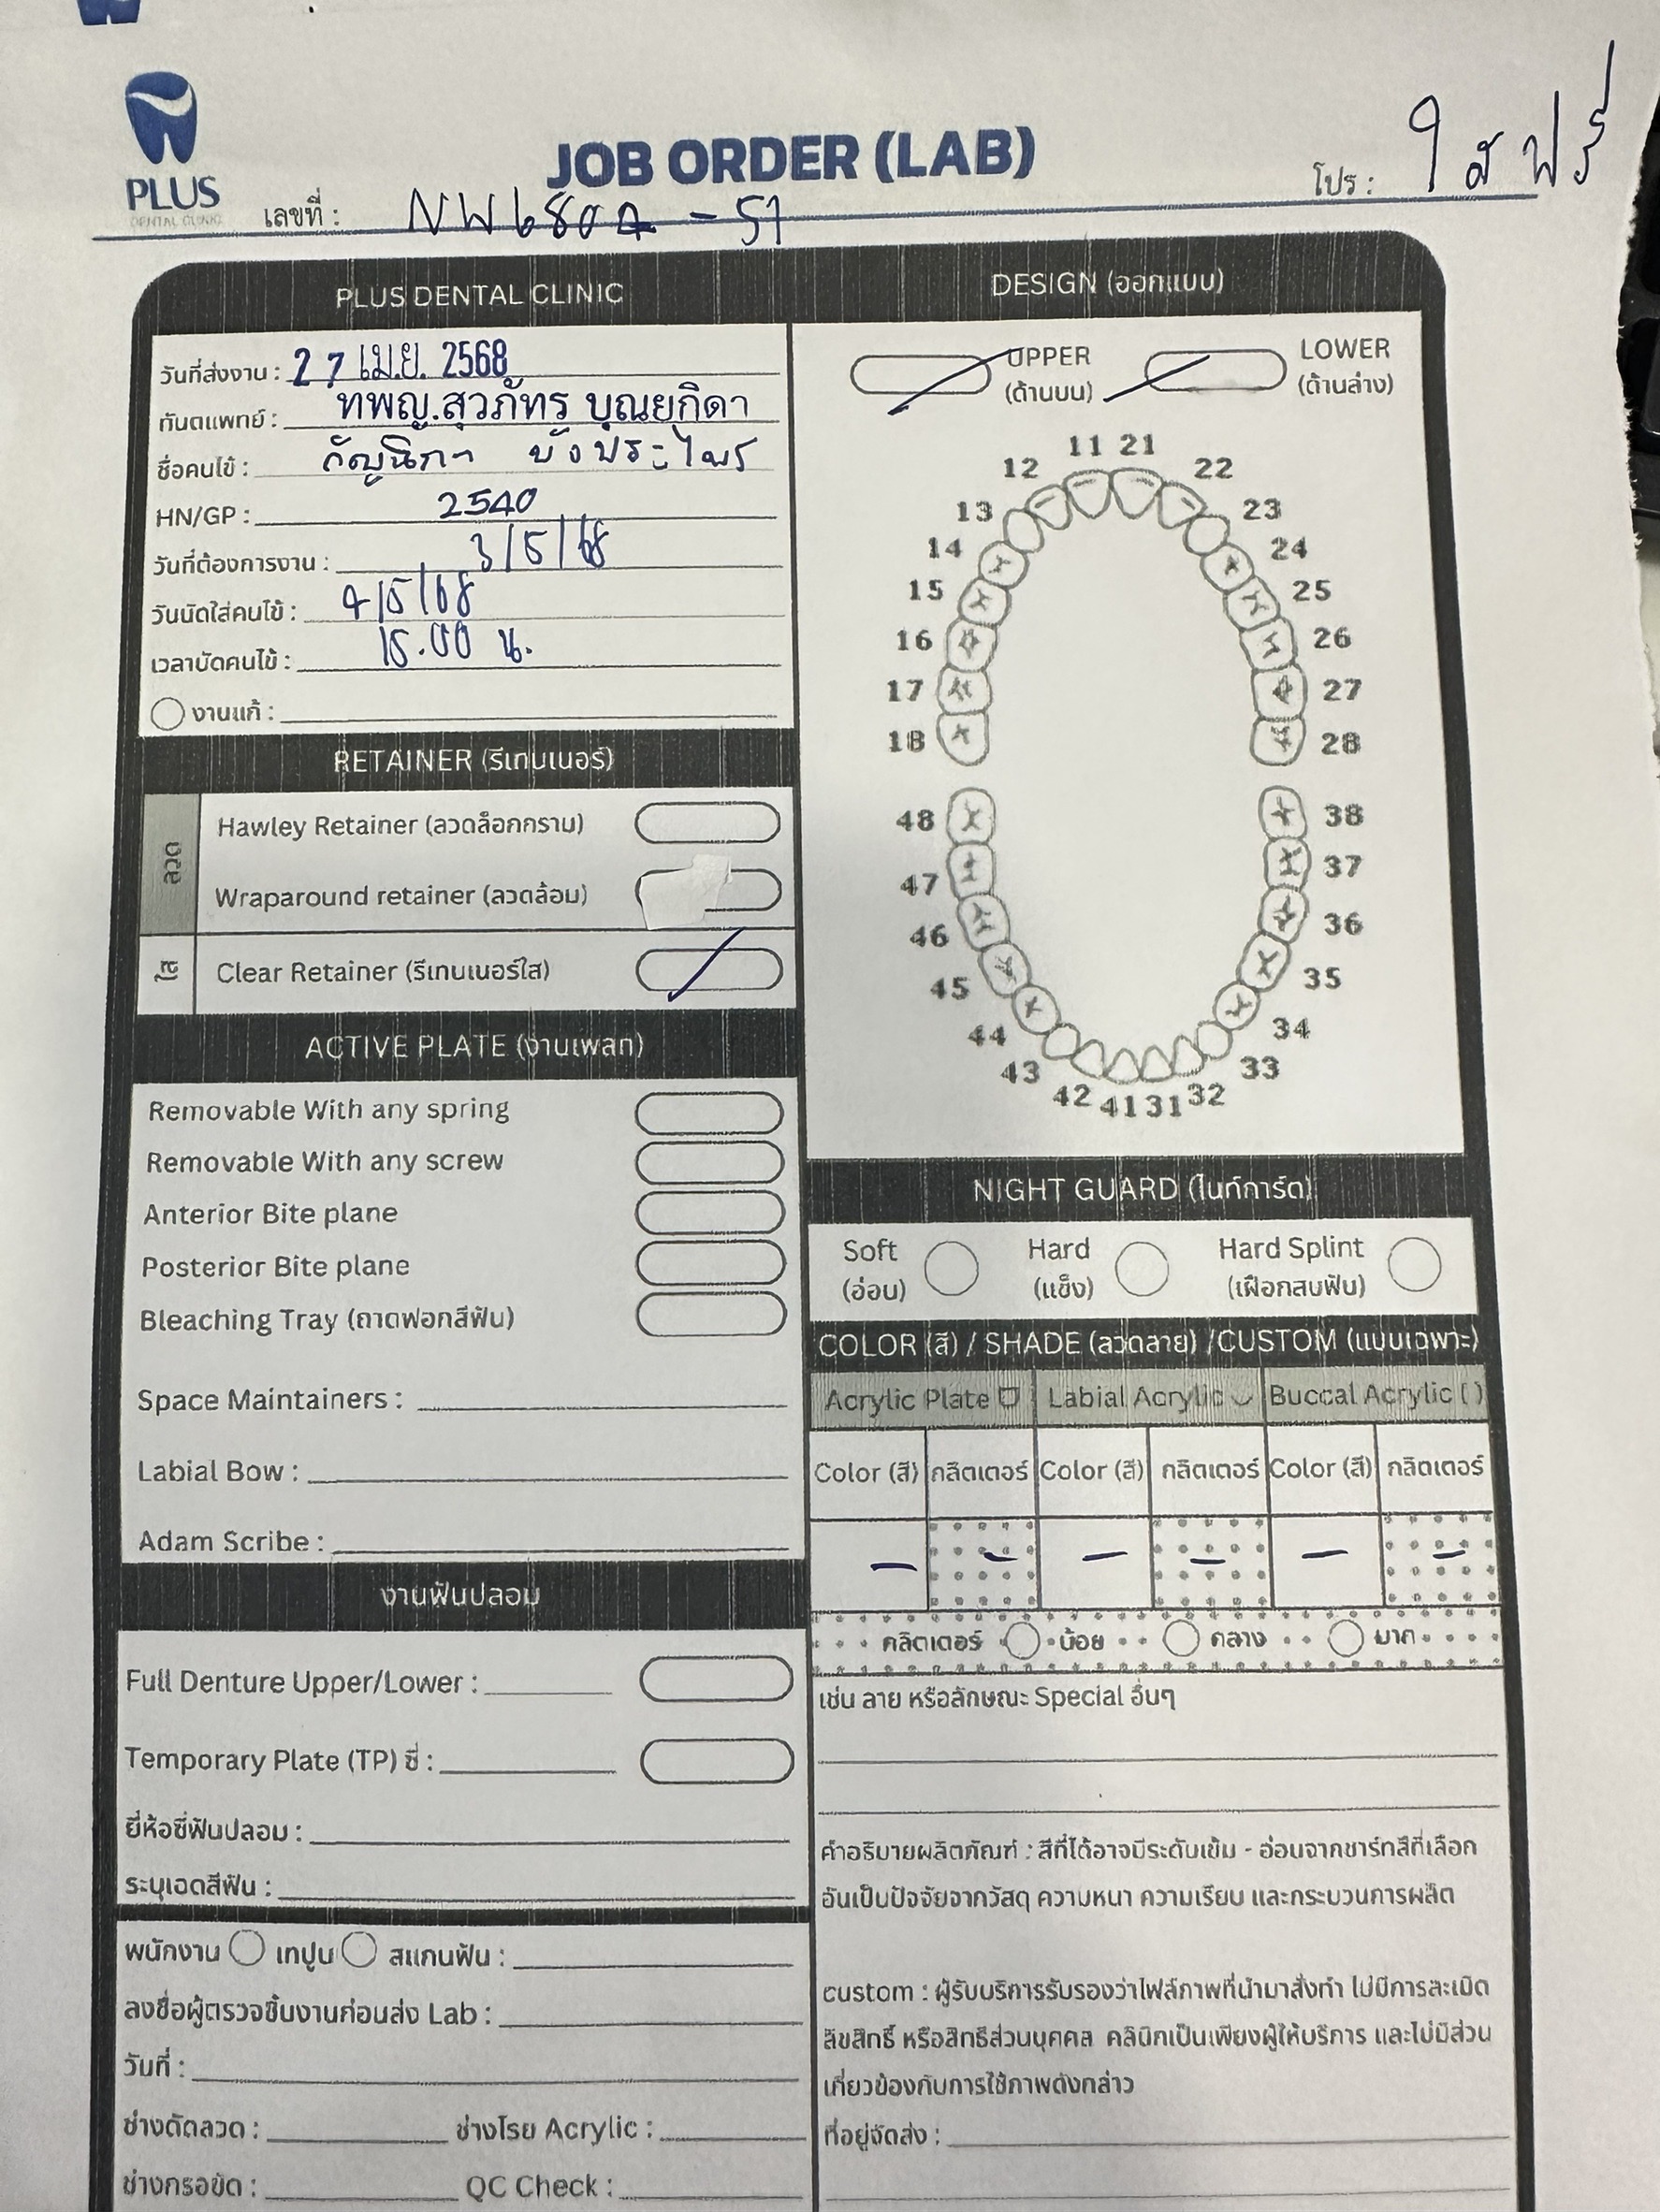 PLUS
DENTAL CLINIC
JOB ORDER (LAB)
เลขที่ : NW6804 - 51
โปร : ใสฟรี
PLUS DENTAL CLINIC
วันที่ส่งงาน : 27 เม.ย. 2568
ทันตแพทย์ : ทพญ.สุวภัทร บุณยกิดา
ชื่อคนไข้ : กัญนิภา บังประไพร
HN/GP : 2540
วันที่ต้องการงาน : 3/5/68
วันนัดใส่คนไข้ : 4/5/68
เวลานัดคนไข้ : 15.00 น.
งานแก้ :
RETAINER (รีเทนเนอร์)
ลวด
Hawley Retainer (ลวดล็อกกราม)
Wraparound retainer (ลวดล้อม)
ใส
Clear Retainer (รีเทนเนอร์ใส)
ACTIVE PLATE (งานเพลท)
Removable With any spring
Removable With any screw
Anterior Bite plane
Posterior Bite plane
Bleaching Tray (ถาดฟอกสีฟัน)
Space Maintainers :
Labial Bow :
Adam Scribe :
งานฟันปลอม
Full Denture Upper/Lower :
Temporary Plate (TP) ซี่ :
ยี่ห้อซี่ฟันปลอม :
ระบุเฉดสีฟัน :
พนักงาน เทปูน สแกนฟัน :
ลงชื่อผู้ตรวจชิ้นงานก่อนส่ง Lab :
วันที่ :
ช่างดัดลวด : ช่างโรย Acrylic :
ช่างกรอขัด : QC Check :
DESIGN (ออกแบบ)
UPPER
(ด้านบน)
LOWER
(ด้านล่าง)
11 21
12 22
13 23
14 24
15 25
16 26
17 27
18 28
48 38
47 37
46 36
45 35
44 34
43 33
42 41 31 32
NIGHT GUARD (ไนท์การ์ด)
Soft
(อ่อน)
Hard
(แข็ง)
Hard Splint
(เฝือกสบฟัน)
COLOR (สี) / SHADE (ลวดลาย) /CUSTOM (แบบเฉพาะ)
Acrylic Plate Labial Acrylic Buccal Acrylic ( )
Color (สี) กลิตเตอร์ Color (สี) กลิตเตอร์ Color (สี) กลิตเตอร์
– – – – – –
กลิตเตอร์ น้อย กลาง มาก
เช่น ลาย หรือลักษณะ Special อื่นๆ
คำอธิบายผลิตภัณฑ์ : สีที่ได้อาจมีระดับเข้ม - อ่อนจากชาร์ทสีที่เลือก
อันเป็นปัจจัยจากวัสดุ ความหนา ความเรียบ และกระบวนการผลิต
custom : ผู้รับบริการรับรองว่าไฟล์ภาพที่นำมาสั่งทำ ไม่มีการละเมิด
ลิขสิทธิ์ หรือสิทธิส่วนบุคคล คลินิกเป็นเพียงผู้ให้บริการ และไม่มีส่วน
เกี่ยวข้องกับการใช้ภาพดังกล่าว
ที่อยู่จัดส่ง :